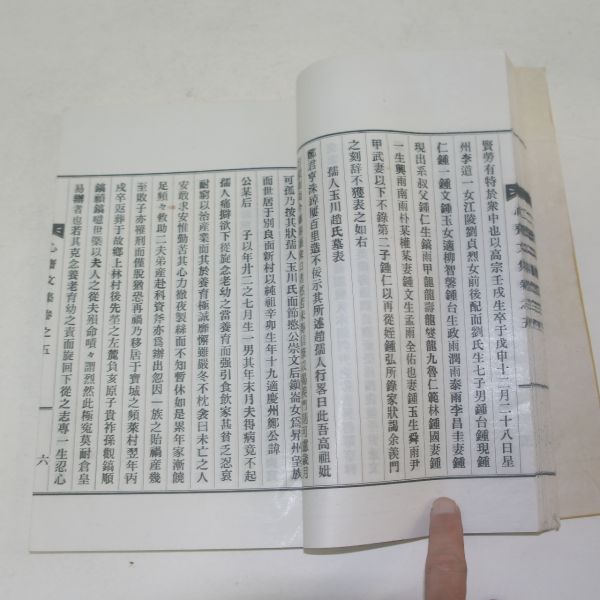 賢勞有特於衆中也以高宗壬戌生卒于戊申十二月二十八日星
州李道一女江陵劉貞烈女前後配而劉氏生七子男鍾台鍾現鍾
仁鍾一鍾文鍾玉女適柳智馨鍾台生政雨潤雨泰雨李昌圭妻鍾
現出系叔父鍾仁生鎬雨甲龍龍壽龍燮龍九魯仁範林鍾國妻鍾
一生興雨南雨朴某權某妻鍾文生孟雨全佑也妻鍾玉生舜雨尹
甲武妻以下不錄第二子鍾仁以再從姪鍾弘所錄家狀謁余羨門
之刻辭不獲表之如右
孺人玉川趙氏墓表
鄭君亨洙踔屢百里遺不侫示其所述趙孺人行畧曰此吾高祖妣
可孤乃按其狀孺人玉川氏而節愍公崇文后鎭崙女爲昇州望族
而世居于別良面新村以純祖辛卯生年十九適慶州鄭公諱
公某后 子以年卄二之七月生一男其年末月夫得病竟不起
孺人痛擗欲下從旋念老幼之當養育而强引食飮家甚貧乏忍哀
耐窮以治產業而其於養育極誠靡懈雖嚴冬不枕衾曰未亡之人
安敢求安惟勤苦其心力徹夜製絲而不知暫休如是累年家漸饒
足頻々救助二夫弟產赴科資斧亦爲辦出忽因一族之貽禍產幾
至敗子亦罹刑而僅脫猶恐再禍乃移居于寶城之頻萊村翌年丙
戌卒返葬于故鄕上林村後先塋之左麓負亥原子貴祚孫觀鎬順
鎬禎鎬噫世槩以夫人之從夫殞命嘖々謂烈然此極寃莫耐倉皇
易辦者也若其克念養老育幼之責而旋回下從之志專一生忍心
心齋文集卷之五
六